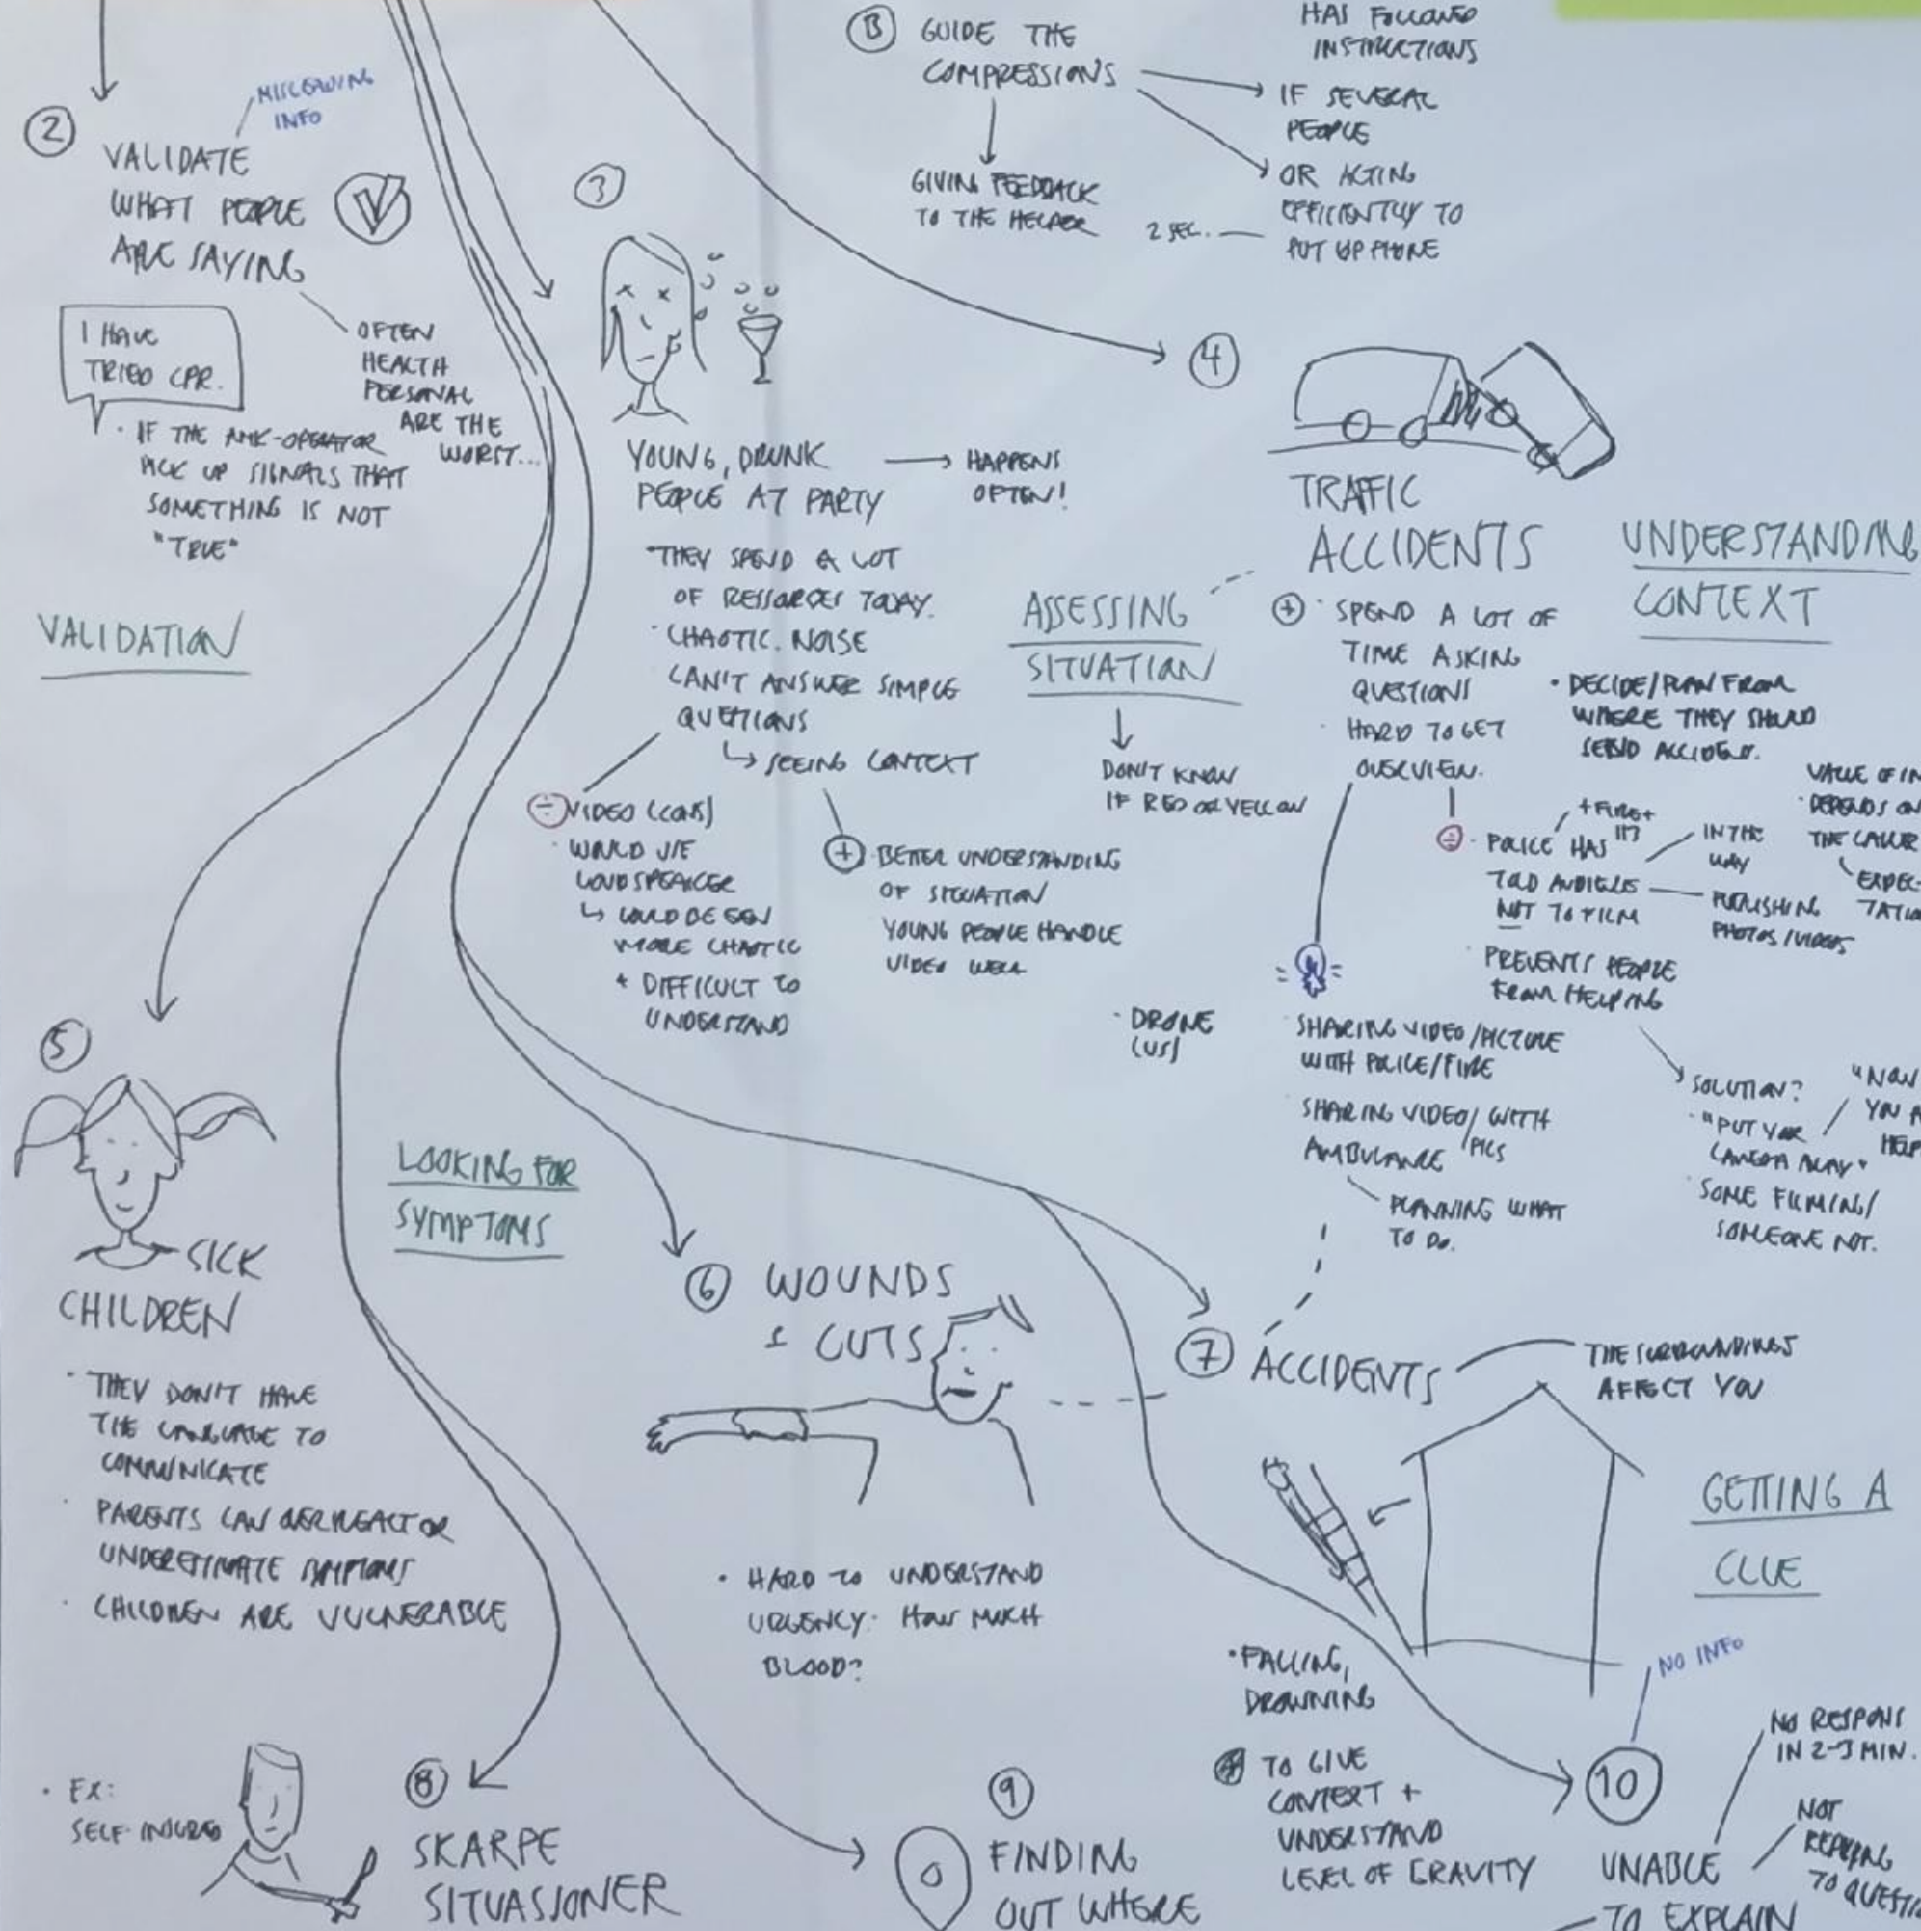 B GUIDE THE
COMPRESSIONS
GIVING FEEDBACK
TO THE HELPER
HAS FOLLOWED
INSTRUCTIONS
IF SEVERAL
PEOPLE
OR ACTING
EFFICIENTLY TO
PUT UP PHONE
2 SEC.
2
INFO
VALIDATE
WHAT PEOPLE
ARE SAYING
I HAVE
TRIED CPR.
OFTEN
HEALTH
PERSONAL
ARE THE
WORST...
· IF THE AMK-OPERATOR
PICK UP SIGNALS THAT
SOMETHING IS NOT
"TRUE"
VALIDATION
3
YOUNG, DRUNK
PEOPLE AT PARTY
HAPPENS
OFTEN!
· THEY SPEND A LOT
OF RESSORCES TODAY.
· CHAOTIC. NOISE
CAN'T ANSWER SIMPLE
QUESTIONS
↳ SEEING CONTEXT
÷ VIDEO (CONS)
· WOULD USE
LOUDSPEAKER
↳ COULD BE EVEN
MORE CHAOTIC
+ DIFFICULT TO
UNDERSTAND
+ BETTER UNDERSTANDING
OF SITUATION
YOUNG PEOPLE HANDLE
VIDEO WELL
ASSESSING
SITUATION
DON'T KNOW
IF RED OR YELLOW
4
TRAFFIC
ACCIDENTS
+ · SPEND A LOT OF
TIME ASKING
QUESTIONS
· HARD TO GET
OVERVIEW.
UNDERSTANDING
CONTEXT
· DECIDE/PLAN FROM
WHERE THEY SHOULD
SEND
VALUE OF IN
· DEPENDS ON
THE CALLER
EXPEC-
TATIO
÷ · POLICE HAS
+ FIRE +
TOLD
NOT TO FILM
IN THE
WAY
PUBLISHING
PHOTOS/VIDEOS
· PREVENTS PEOPLE
FROM HELPING
SOLUTION?
· "PUT YOUR
CAMERA AWAY"
"NOW
YOU A
HELP
· SOME FILMING/
SOMEONE NOT.
· DRONE
(US)
SHARING VIDEO/PICTURE
WITH POLICE/FIRE
SHARING VIDEO/PICS WITH
AMBULANCE
PLANNING WHAT
TO DO.
5
SICK
CHILDREN
· THEY DON'T HAVE
THE LANGUAGE TO
COMMUNICATE
· PARENTS CAN OVERREACT OR
UNDERESTIMATE SYMPTOMS
· CHILDREN ARE VULNERABLE
LOOKING FOR
SYMPTOMS
6 WOUNDS
& CUTS
· HARD TO UNDERSTAND
URGENCY: HOW MUCH
BLOOD?
7 ACCIDENTS
THE SURROUNDINGS
AFFECT YOU
GETTING A
CLUE
· FALLING,
DROWNING
TO GIVE
CONTEXT +
UNDERSTAND
LEVEL OF GRAVITY
· EX:
SELF-INJURED
8
SKARPE
SITUASJONER
9
FINDING
OUT WHERE
NO INFO
10
UNABLE
TO EXPLAIN
NO RESPONS
IN 2-3 MIN.
NOT
REPLYING
TO QUESTIO